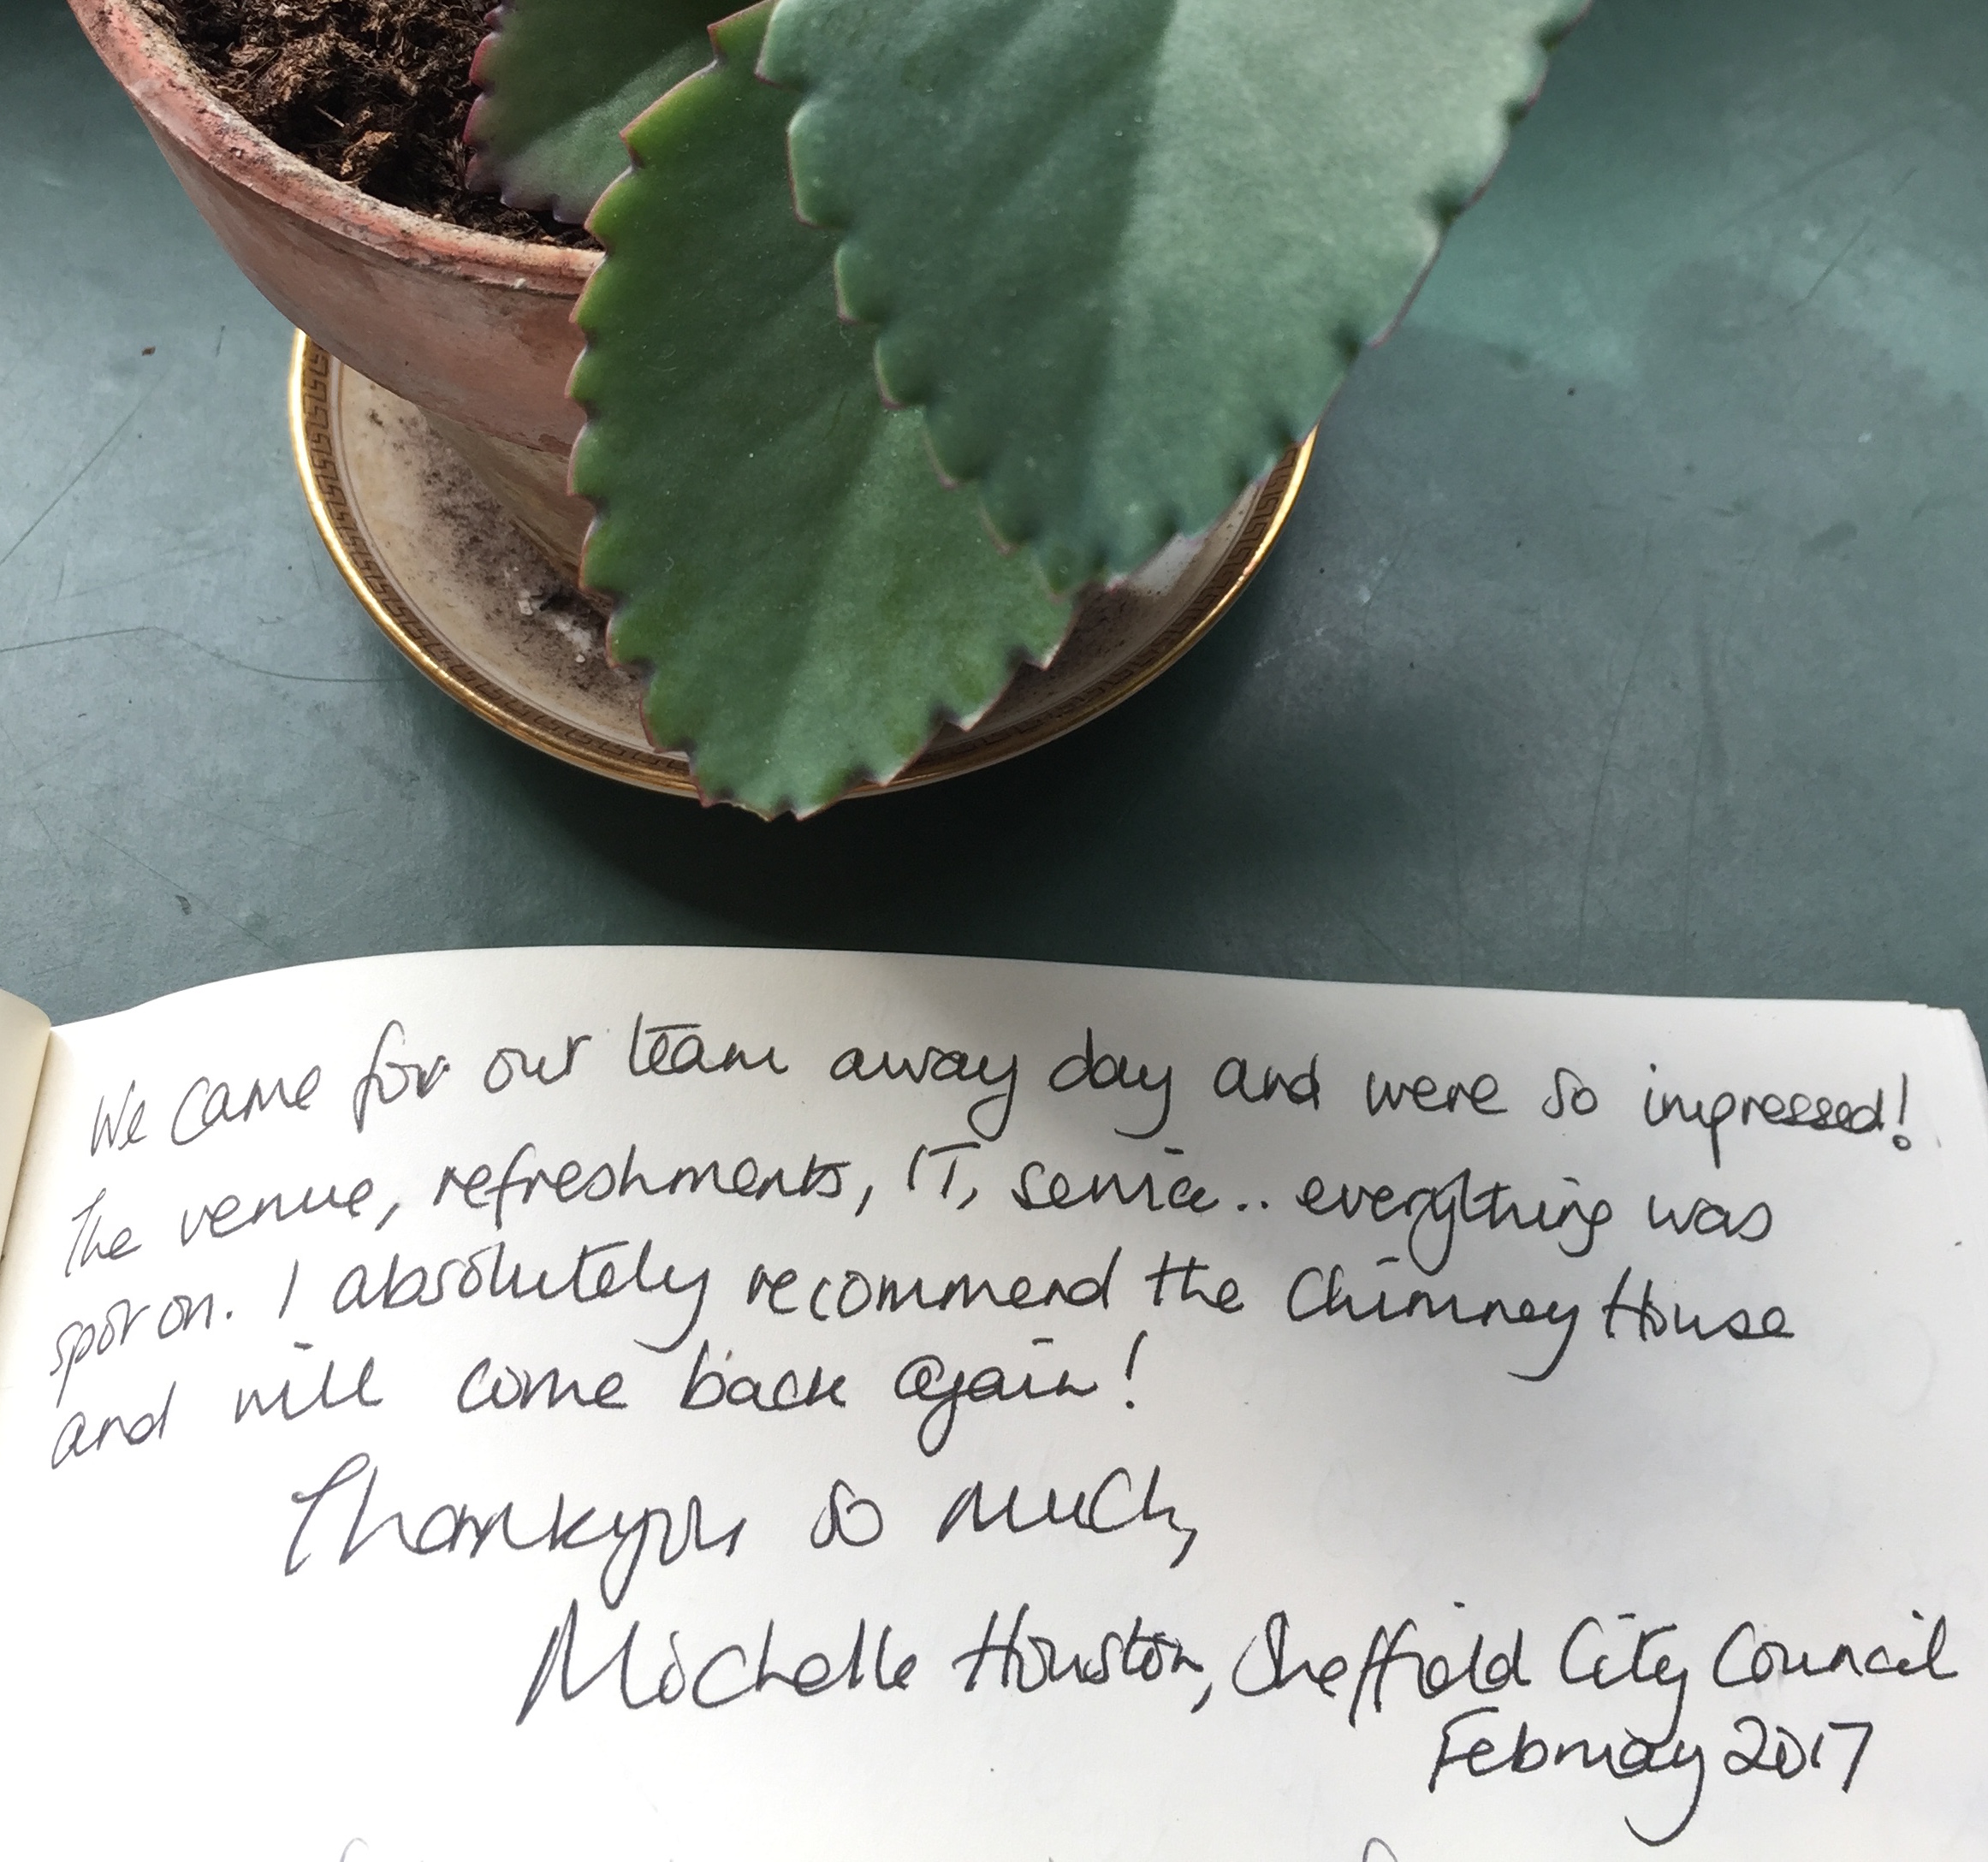 We came for our team away day and were so impressed!
The venue, refreshments, IT, service.. everything was
spot on. I absolutely recommend the Chimney House
and will come back again!
Thankyou so much,
Michelle Houston, Sheffield City Council
February 2017